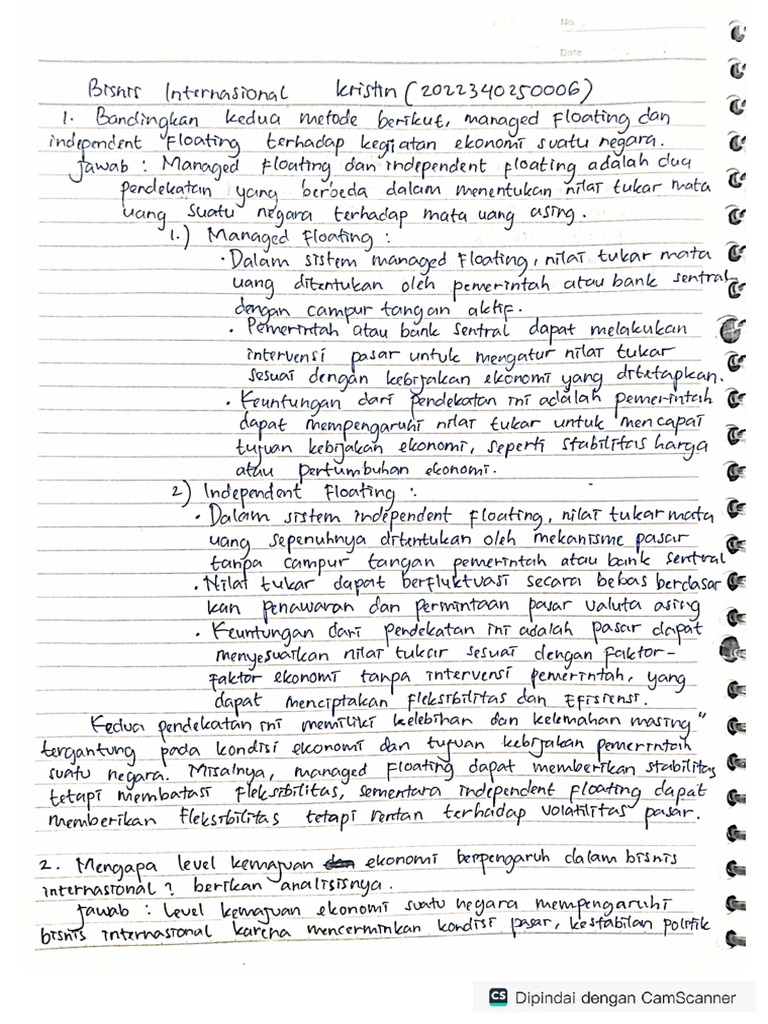 No.
Date
Bisnis Internasional Kristin (2022340250006)
1. Bandingkan kedua metode berikut, managed Floating dan
independent Floating terhadap kegiatan ekonomi suatu negara.
Jawab : Managed Floating dan independent floating adalah dua
pendekatan yang berbeda dalam menentukan nilai tukar mata
uang suatu negara terhadap mata uang asing.
1.) Managed Floating :
• Dalam sistem managed Floating, nilai tukar mata
uang ditentukan oleh pemerintah atau bank sentral
dengan campur tangan aktif.
• Pemerintah atau bank sentral dapat melakukan
intervensi pasar untuk mengatur nilai tukar
sesuai dengan kebijakan ekonomi yang ditetapkan.
• Keuntungan dari pendekatan ini adalah pemerintah
dapat mempengaruhi nilai tukar untuk mencapai
tujuan kebijakan ekonomi, seperti stabilitas harga
atau pertumbuhan ekonomi.
2) Independent Floating :
• Dalam sistem independent Floating, nilai tukar mata
uang sepenuhnya ditentukan oleh mekanisme pasar
tanpa campur tangan pemerintah atau bank sentral
• Nilai tukar dapat berfluktuasi secara bebas berdasar
kan penawaran dan permintaan pasar valuta asing
• Keuntungan dari pendekatan ini adalah pasar dapat
menyesuaikan nilai tukar sesuai dengan faktor-
faktor ekonomi tanpa intervensi pemerintah, yang
dapat menciptakan Fleksibilitas dan Efisiensi.
Kedua pendekatan ini memiliki kelebihan dan kelemahan masing"
tergantung pada kondisi ekonomi dan tujuan kebijakan pemerintah
suatu negara. Misalnya, managed Floating dapat memberikan stabilitas
tetapi membatasi Fleksibilitas, sementara independent Floating dapat
memberikan Fleksibilitas tetapi rentan terhadap volatilitas pasar.
2. Mengapa level kemajuan ekonomi berpengaruh dalam bisnis
internasional ? berikan analisisnya.
Jawab : Level kemajuan ekonomi suatu negara mempengaruhi
bisnis internasional karena mencerminkan kondisi pasar, kestabilan politik
CS Dipindai dengan CamScanner